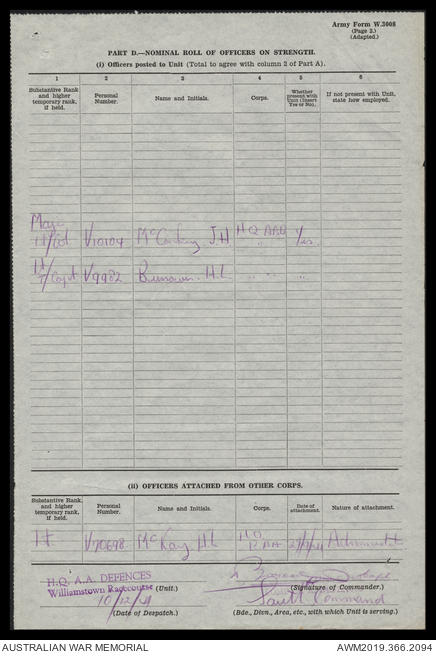 Army Form W.3008
(Page 3.)
(Adapted.)
PART D.—NOMINAL ROLL OF OFFICERS ON STRENGTH.
(i) Officers posted to Unit (Total to agree with column 2 of Part A).
1 2 3 4 5 6
Substantive Rank and higher temporary rank, if held. Personal Number. Name and Initials. Corps. Whether present with Unit (Insert Yes or No). If not present with Unit, state how employed.
Major
Lt/Col V10104 J.H HQ Yes.
Lt
T/Capt V9982 H.L
(ii) OFFICERS ATTACHED FROM OTHER CORPS.
Substantive Rank, and higher temporary rank, if held. Personal Number. Name and Initials. Corps. Date of attachment. Nature of attachment.
Lt. V70698 McKay HL HQ
H.Q. A.A. DEFENCES
Williamstown Racecourse (Unit.) (Signature of Commander.)
10/12/41 South Command
(Date of Despatch.) (Bde., Divn., Area, etc., with which Unit is serving.)
AUSTRALIAN WAR MEMORIAL AWM2019.366.2094